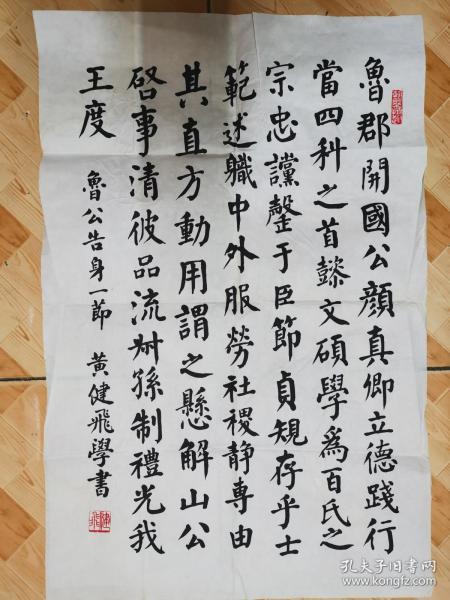 魯郡開國公顏真卿立德踐行
當四科之首懿文碩學為百氏之
宗忠讜罄于臣節貞規存乎士
範述職中外服勞社稷静專由
其直方動用謂之懸解山公
啓事清彼品流叔孫制禮光我
王度
魯公告身一節 黃健飛學書
孔夫子旧书网
www.kongfz.com